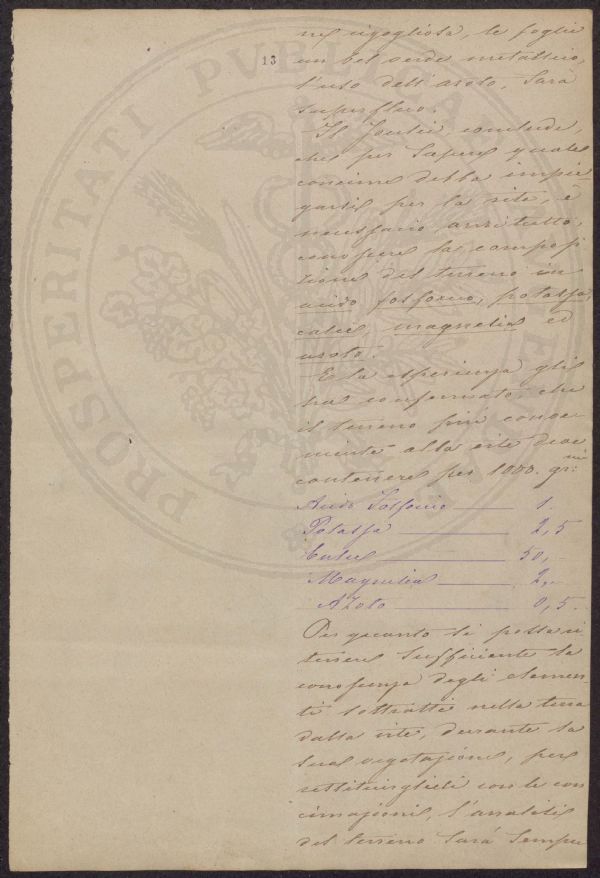 13
PROSPERITATI PVBLICAE
ne rigogliosa, le foglie
un bel verde metallico,
l'uso dell'azoto, sarà
superfluo.
Il conclude,
che per sapere quale
concime debba impie
garsi per la vite, è
necessario anzitutto,
conoscere la composi
zione del terreno in
acido fosforico, potassa,
calce, magnesia ed
azoto.
E la esperienza gli
ha confermato, che
il terreno più conve
niente alla vite deve
contenere per 1000. gr:mi
Acido Fosforico — 1.
Potassa — 2,5
Calce — 50,-
Magnesia — 2,-
Azoto — 0,5.
Per quanto si possa ri
tenere sufficiente la
conoscenza degli elemen
ti sottratti nella terra
dalla vite, durante la
sua vegetazione, per
restituirglieli con le con
cimazioni, l'analisi
del terreno sarà sempre